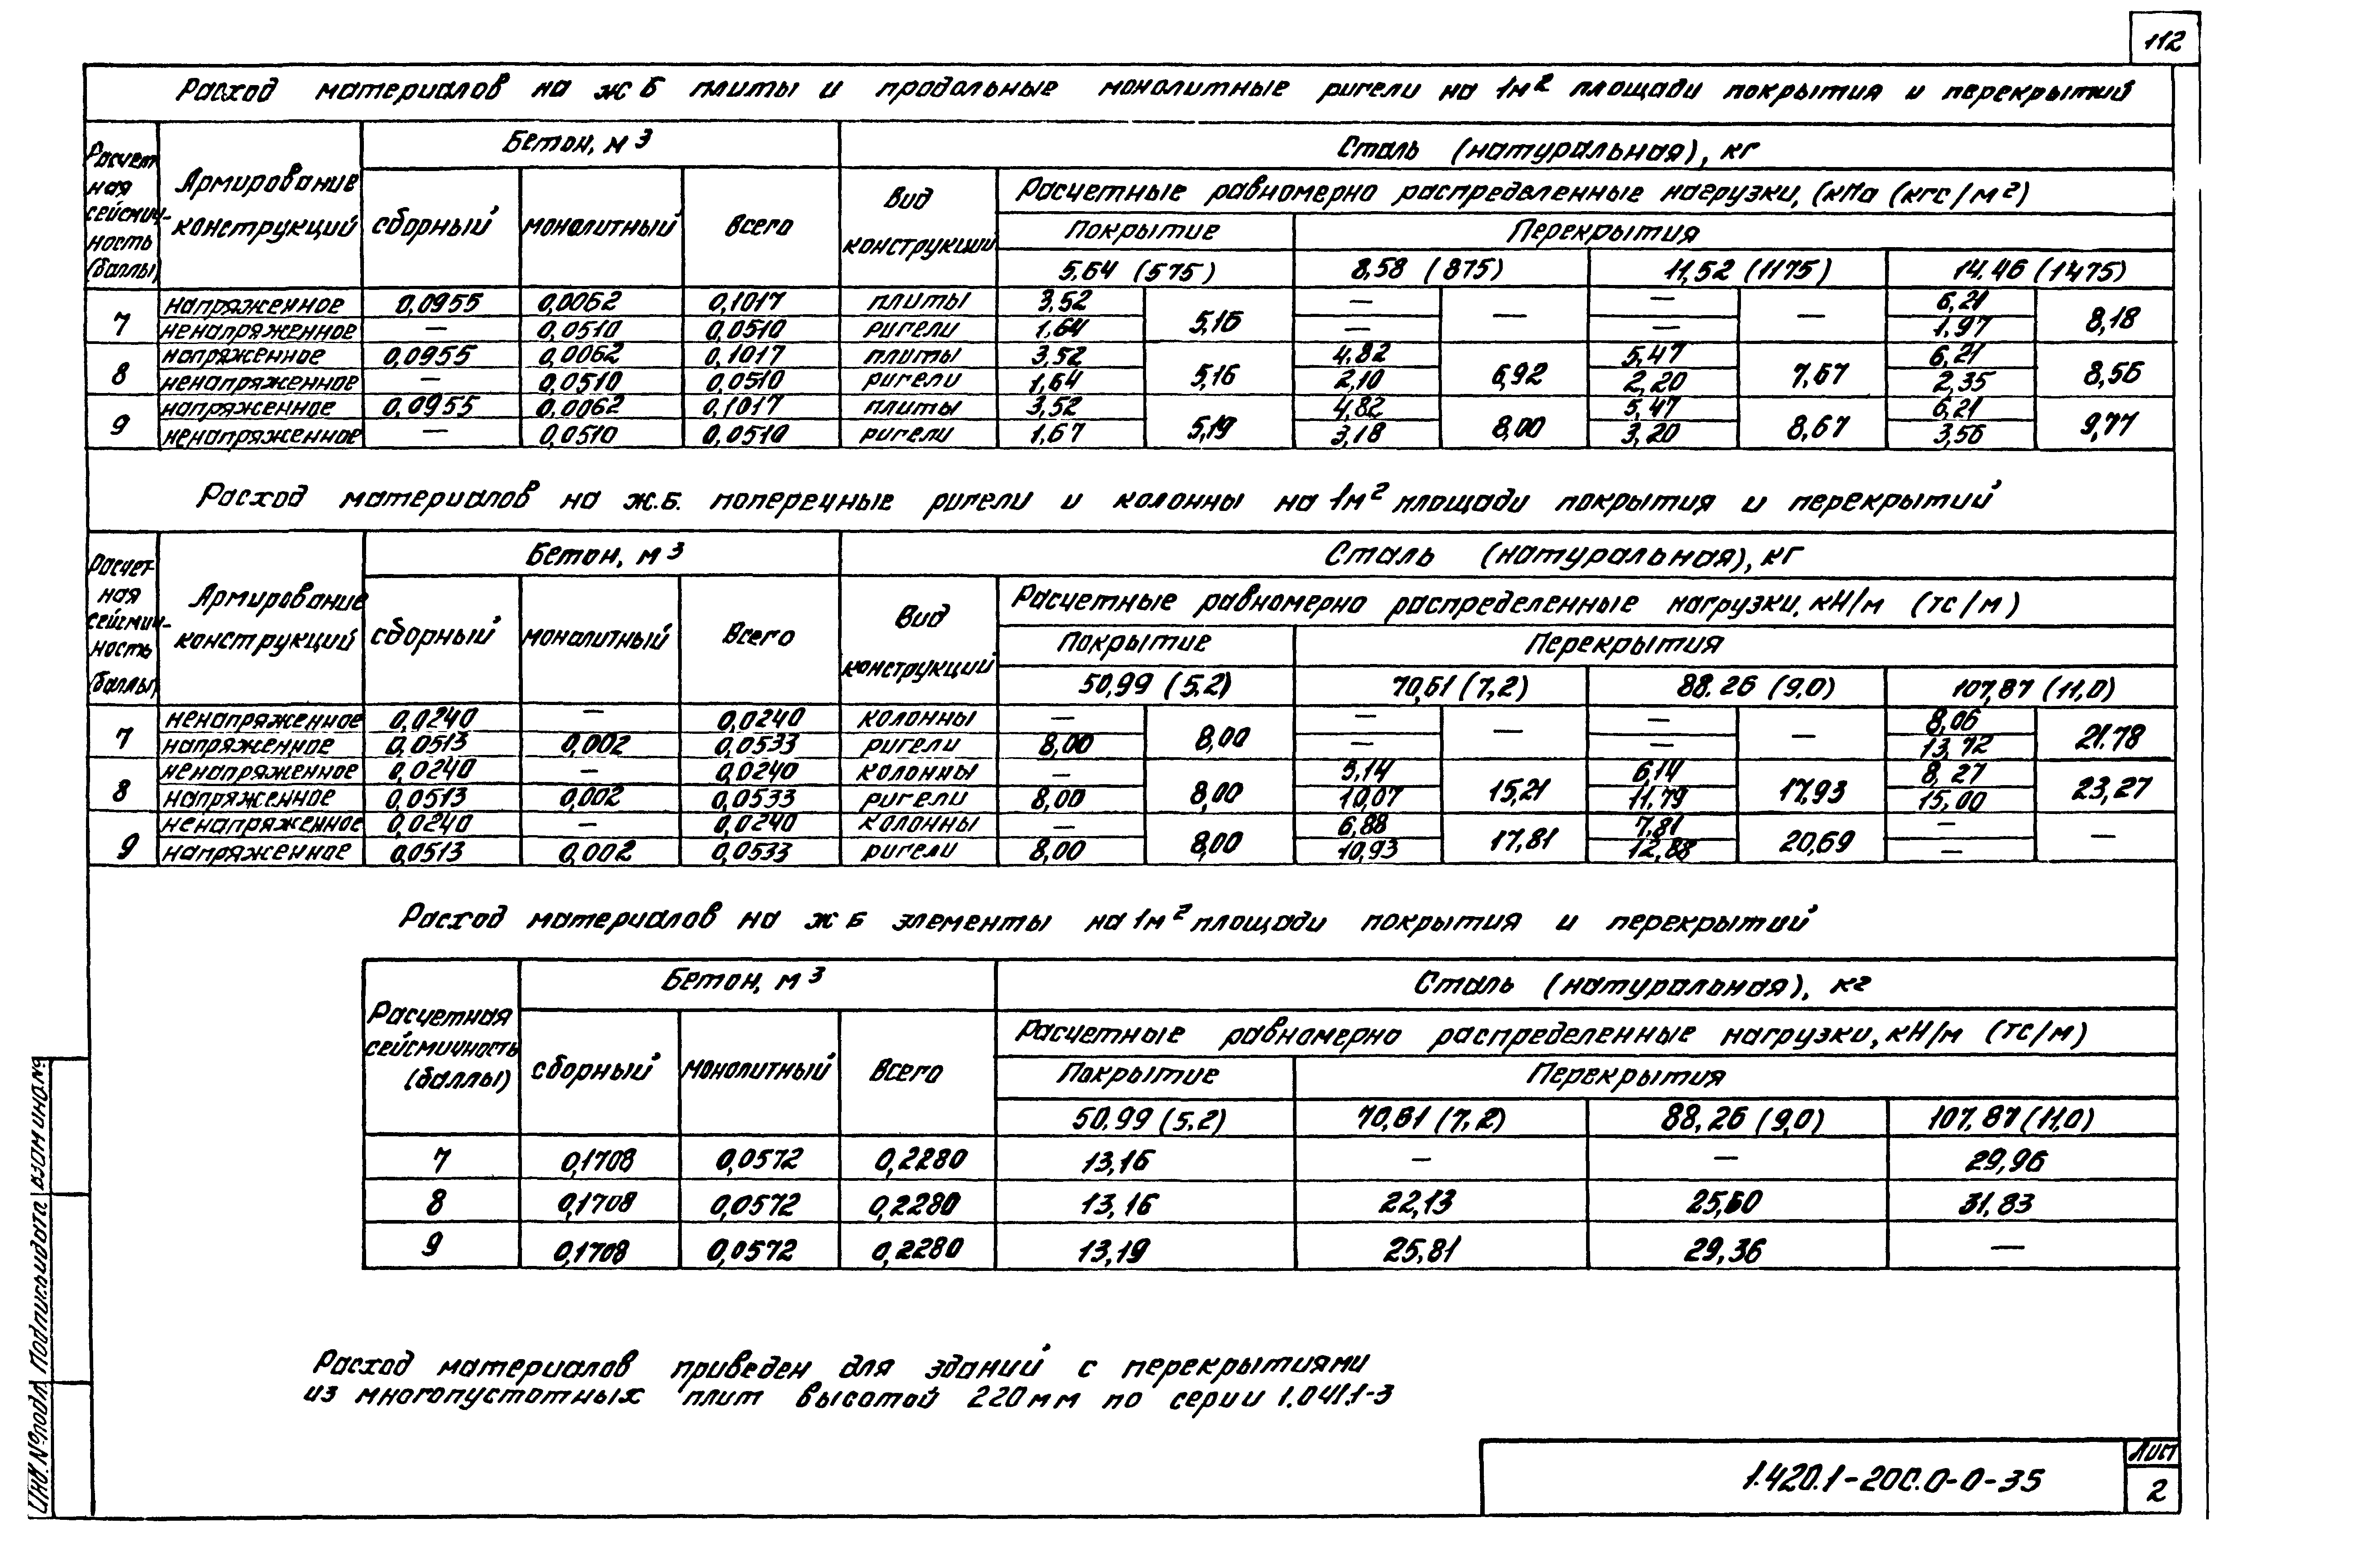 112
Расход материалов на ж Б плиты и продольные монолитные ригели на 1м² площади покрытия и перекрытий
Расчет ная сейсмич- ность (баллы) | Армирование конструкций | Бетон, м³ | Вид конструкций | Сталь (натуральная), кг
сборный | монолитный | Всего | Расчетные равномерно распределенные нагрузки, (кПа (кгс/м²)
Покрытие | Перекрытия
5,64 (575) | 8,58 (875) | 11,52 (1175) | 14.46 (1475)
7 | напряженное | 0,0955 | 0,0062 | 0,1017 | плиты | 3,52 | 5,16 | — | — | — | — | 6,21 | 8,18
ненапряженное | — | 0,0510 | 0,0510 | ригели | 1,64 | — | — | 1,97
8 | напряженное | 0,0955 | 0,0062 | 0,1017 | плиты | 3,52 | 5,16 | 4,82 | 6,92 | 5,47 | 7,67 | 6,21 | 8,56
ненапряженное | — | 0,0510 | 0,0510 | ригели | 1,64 | 2,10 | 2,20 | 2,35
9 | напряженное | 0,0955 | 0,0062 | 0,1017 | плиты | 3,52 | 5,19 | 4,82 | 8,00 | 5,47 | 8,67 | 6,21 | 9,77
ненапряженное | — | 0,0510 | 0,0510 | ригели | 1,67 | 3,18 | 3,20 | 3,56
Расход материалов на ж.Б. поперечные ригели и колонны на 1м² площади покрытия и перекрытий
Расчет- ная сейсмич- ность (баллы) | Армирование конструкций | Бетон, м³ | Вид конструкций | Сталь (натуральная), кг
сборный | монолитный | Всего | Расчетные равномерно распределенные нагрузки, кН/м (тс/м)
Покрытие | Перекрытия
50,99 (5,2) | 70,61 (7,2) | 88.26 (9,0) | 107,87 (11,0)
7 | ненапряженное | 0,0240 | — | 0,0240 | колонны | — | 8,00 | — | — | — | — | 8,06 | 21.78
напряженное | 0,0513 | 0,002 | 0,0533 | ригели | 8,00 | — | — | 13,72
8 | ненапряженное | 0,0240 | — | 0,0240 | колонны | — | 8,00 | 5,14 | 15,21 | 6,14 | 17,93 | 8,27 | 23,27
напряженное | 0,0513 | 0,002 | 0,0533 | ригели | 8,00 | 10,07 | 11,79 | 15,00
9 | ненапряженное | 0,0240 | — | 0,0240 | колонны | — | 8,00 | 6,88 | 17,81 | 7,81 | 20,69 | — | —
напряженное | 0,0513 | 0,002 | 0,0533 | ригели | 8,00 | 10,93 | 12,88 | —
Расход материалов на ж Б элементы на 1м² площади покрытия и перекрытий
Расчетная сейсмичность (баллы) | Бетон, м³ | Сталь (натуральная), кг
сборный | монолитный | Всего | Расчетные равномерно распределенные нагрузки, кН/м (тс/м)
Покрытие | Перекрытия
50.99 (5.2) | 70,61 (7,2) | 88,26 (9,0) | 107,87 (11,0)
7 | 0,1708 | 0,0572 | 0,2280 | 13,16 | — | — | 29,96
8 | 0,1708 | 0,0572 | 0,2280 | 13,16 | 22,13 | 25,60 | 31,83
9 | 0,1708 | 0,0572 | 0,2280 | 13,19 | 25,81 | 29,36 | —
Расход материалов приведен для зданий с перекрытиями
из многопустотных плит высотой 220 мм по серии 1.041.1-3
Инв.№подл. Подпись и дата Взам инв.№
1.420.1-20С.0-0-35
Лист
2